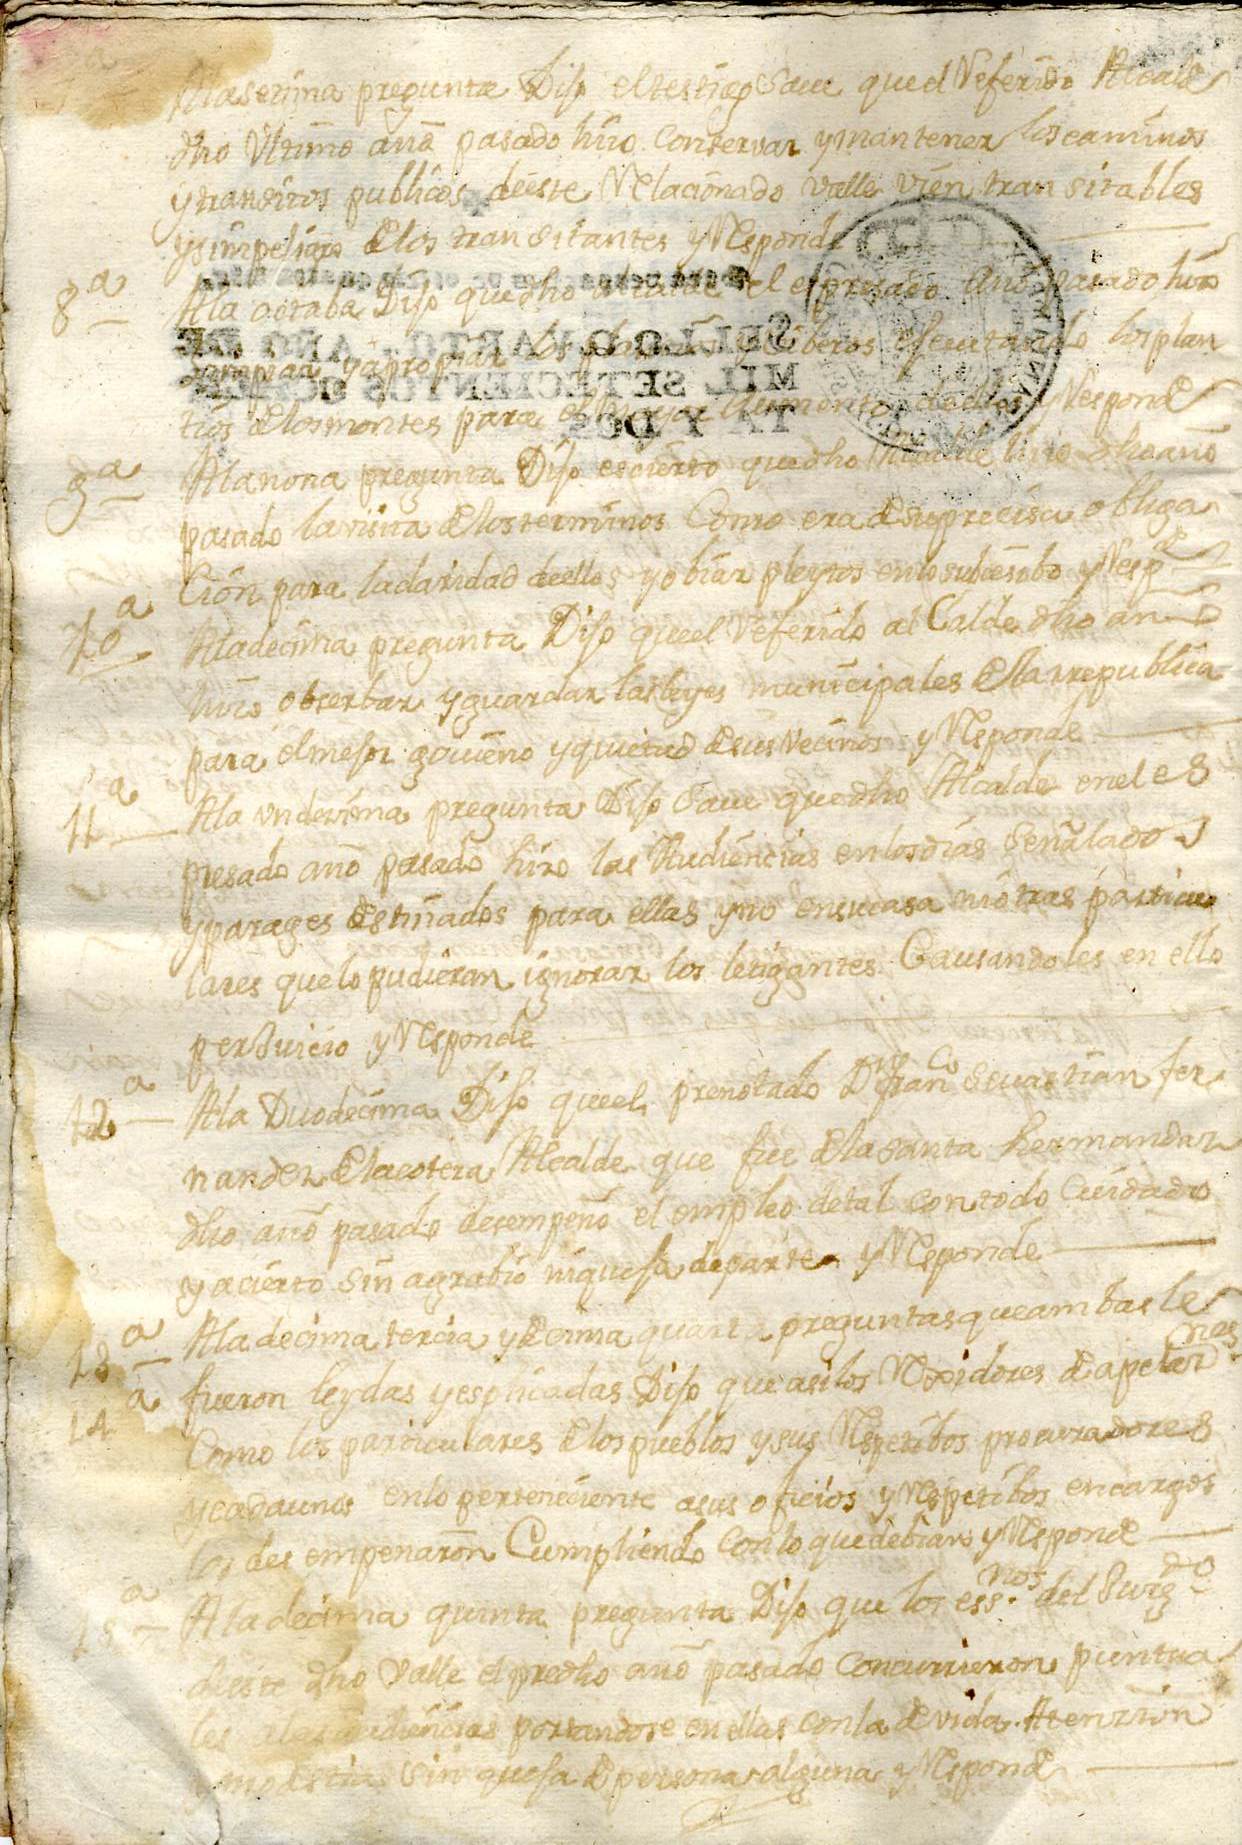 Ala setima pregunta Dijo el testigo saue que el Referido Alcalde
dho Vltimo año pasado hizo Conseruar y mantener los caminos
y transitos publicos deeste Relacionado valle vien transitables
y sin peligro de los transitantes y Responde
8ª Ala octaba Dijo que dho Alcalde el espresado año pasado hizo
limpiar y apropiar los plantios y viberos efecutando los plan
tios de los montes para el mayor Aumento de ellos y Responde
9ª Ala nona pregunta Dijo es cierto que dho Alcalde hizo dho año
pasado la visita de los terminos Como era de su precisa obliga
Cion para la claridad de ellos y obiar pleytos en lo subcesibo y Respde
10ª Ala decima pregunta Dijo que el referido al Calde dho año
hizo obserbar y guardar las leyes municipales de la republica
para el mejor gouierno y quietud de sus Vecinos y Responde
11ª Ala vndezima pregunta Dijo Saue que dho Alcalde en el es
presado año pasado hizo las Audiencias en los dias señalados
y parages destinados para ellas y no en su casa ni otras particu
lares que lo pudieran ignorar los letigantes Causandoles en ello
perjuicio y Responde
12ª Ala Duodecima Dijo que el prenotado Dn Franco Seuastian fer
nandez de la cotera Alcalde que fue de la santa hermandad
dho año pasado desempeño el empleo de tal con todo Cuidado
y acierto sin agrabio ni quefa de parte y Responde
13ª Ala decima tercia y decima quarta preguntas que ambas le
14ª fueron leydas y esplicadas Dijo que asi los Rexidores de apelaciones
Como los particulares de los pueblos y sus Respetibos procuradores
y cada unos en lo perteneciente a sus oficios y Respetibos encargos
los desempeñaron Cumpliendo con lo que debian y Responde
15ª Ala decima quinta pregunta Dijo que los essnos del Juzgdo
deeste dho Valle el predho año pasado Concurrieron puntua
les a las audiencias portandose en ellas con la devida Atenzion
y modestia sin quefa de persona alguna y Responde
SELLO QVARTO, AÑO DE
MIL SETECIENTOS OCHEN
TA Y DOS.